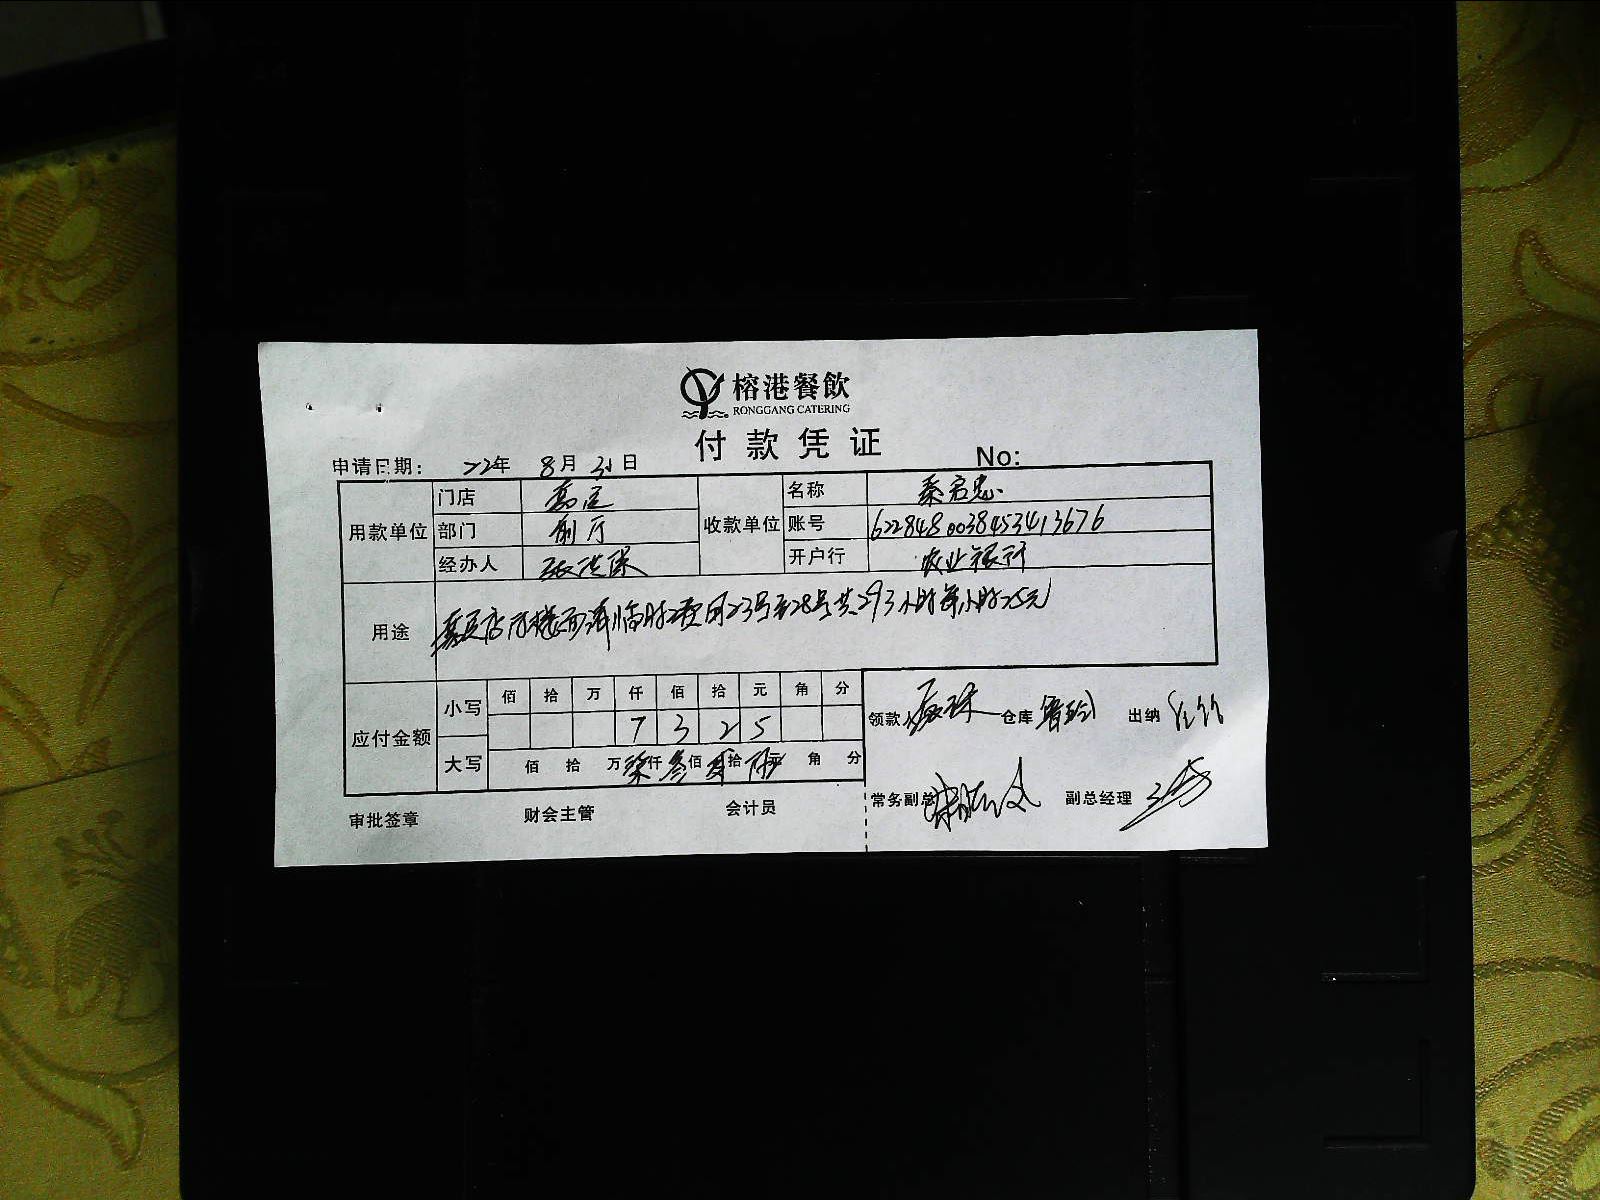 榕港餐飲
RONGGANG CATERING
付款凭证
申请日期： 22年 8月 31日 No:
用款单位 门店 收款单位 名称 秦启忠
部门 前厅 账号 6228480038453413676
经办人 开户行 农业银行
用途 店 楼面请临时工费用23号至28号共293小时每小时25元
应付金额 小写 佰 拾 万 仟 佰 拾 元 角 分
7 3 2 5
大写 佰 拾 万柒仟叁佰贰拾伍元 角 分
领款人 仓库 出纳
常务副总 副总经理
审批签章 财会主管 会计员